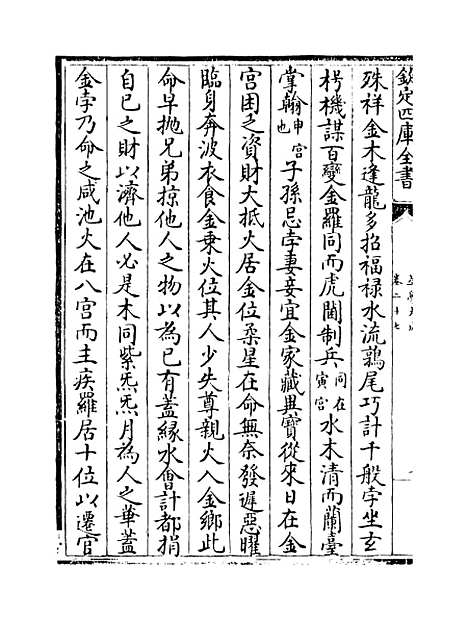 欽定四庫全書
卷二十七
殊祥金木逢龍多招福祿水流鶉尾巧計千般孛坐玄
枵機謀百變金羅同而虎閫制兵同在寅宫水木清而蘭臺
掌翰申宫也子孫忌孛妻妾宜金家藏典寶從來日在金
宫困乏資財大抵火居金位柔星在命無奈發遲惡曜
臨身奔波衣食金乗火位其人少失尊親火入金鄉此
命早抛兄弟掠他人之物以為已有蓋緣水會計都捐
自已之財以濟他人必是木同紫炁炁月為人之華蓋
金孛乃命之咸池火在八宫而主疾羅居十位以遷官